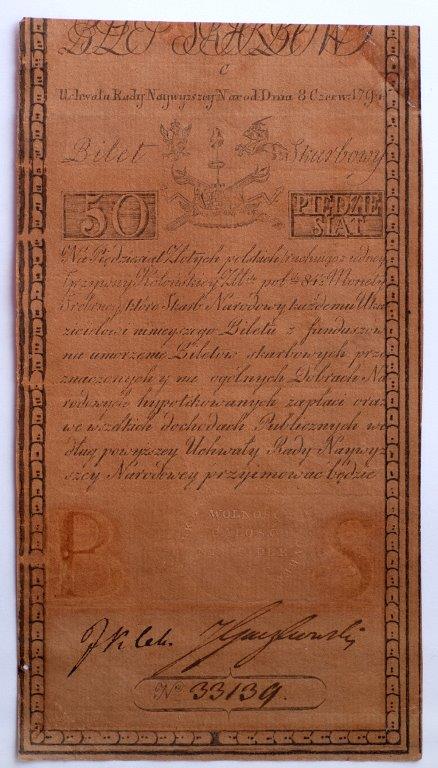 BILET SKARBOWY
C
Uchwała Rady Naywyższey Narod: Dnia 8 Czerw: 1794 r
Bilet Skarbowy
50 PIĘDZIE
SIĄT
Na Piędziesiąt Złotych polskich rachuiąc z iedney
Grzywny Kolońskiey Zł:tch pol:ch 84½ Monety
Srebrney, które Skarb Narodowy każdemu Uka
zicielowi ninieyszego Biletu z funduszów
na umorzenie Biletów skarbowych prze
znaczonych y na ogólnych Dobrach Na
rodowych hypotekowanych zapłaci oraz
we wszelkich dochodach Publicznych we
dług powyższey Uchwały Rady Naywyż
szey Narodowey przyimować będzie
WOLNOŚĆ
CAŁOŚĆ
B S
No 33139.